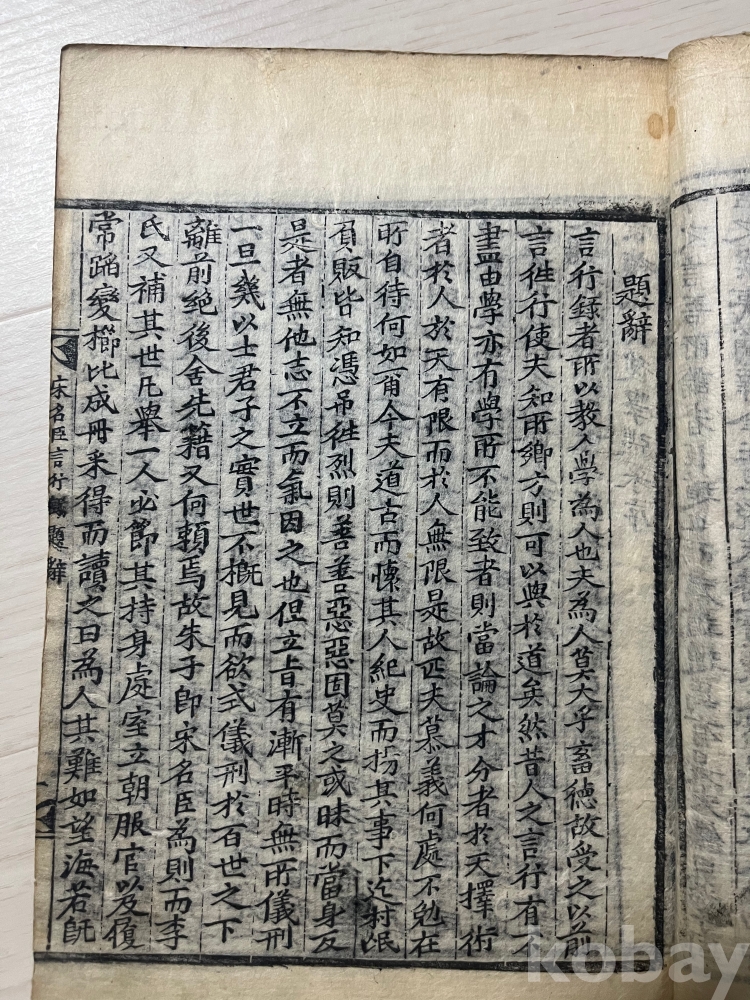 題辭
言行録者所以教人學為人也夫為人莫大乎畜德故受之以前
言徃行使夫知所鄉方則可以與於道矣然昔人之言行有不
盡由學亦有學所不能致者則當論之才分者於天擇術
者於人於天有限而於人無限是故匹夫慕義何處不勉在
所自待何如爾今夫道古而懷其人紀史而揚其事下迄村氓
負販皆知憑吊徃烈則善善惡惡固莫之或昧而當身反
是者無他志不立而氣因之也但立旨有漸平時無所儀刑
一旦幾以士君子之實世不概見而欲式儀刑於百世之下
離前絕後舍先籍又何賴焉故朱子即宋名臣為則而李
氏又補其世凡舉一人必節其持身處室立朝服官以及復
常蹈變櫛比成冊釆得而讀之曰為人其難如望海若旣
宋名臣言行錄 題辭
kobay